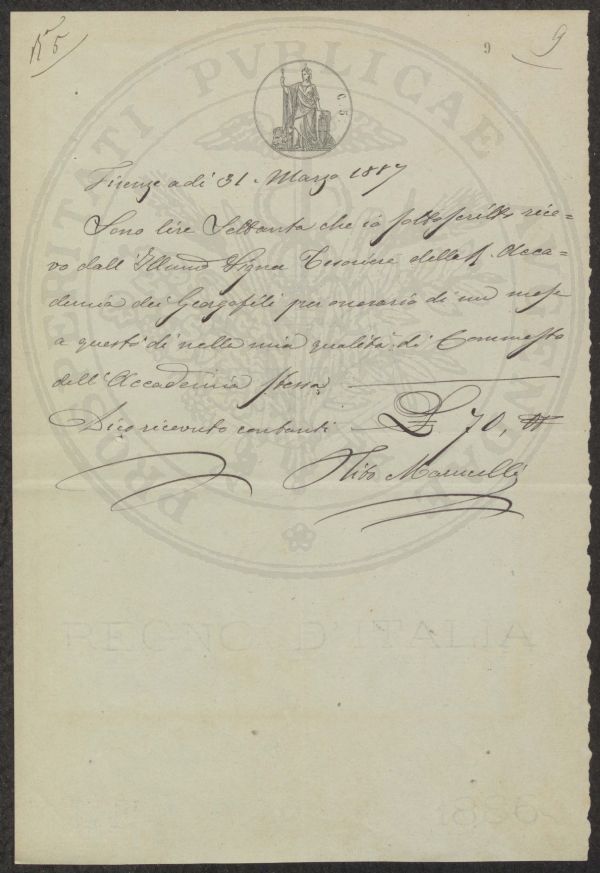 N° 5
9
9
C. 5.
PROSPERITATI PVBLICAE
Firenze adì 31. Marzo 1887
Sono lire Settanta che io sottoscritto rice-
vo dall' Illmo Signor Tesoriere della R. Acca-
demia dei Georgofili per onorario di un mese
a questo dì nella mia qualità di Commesso
dell' Accademia stessa
Dico ricevuto contanti £ 70,
Marucelli
REGNO D'ITALIA
1886